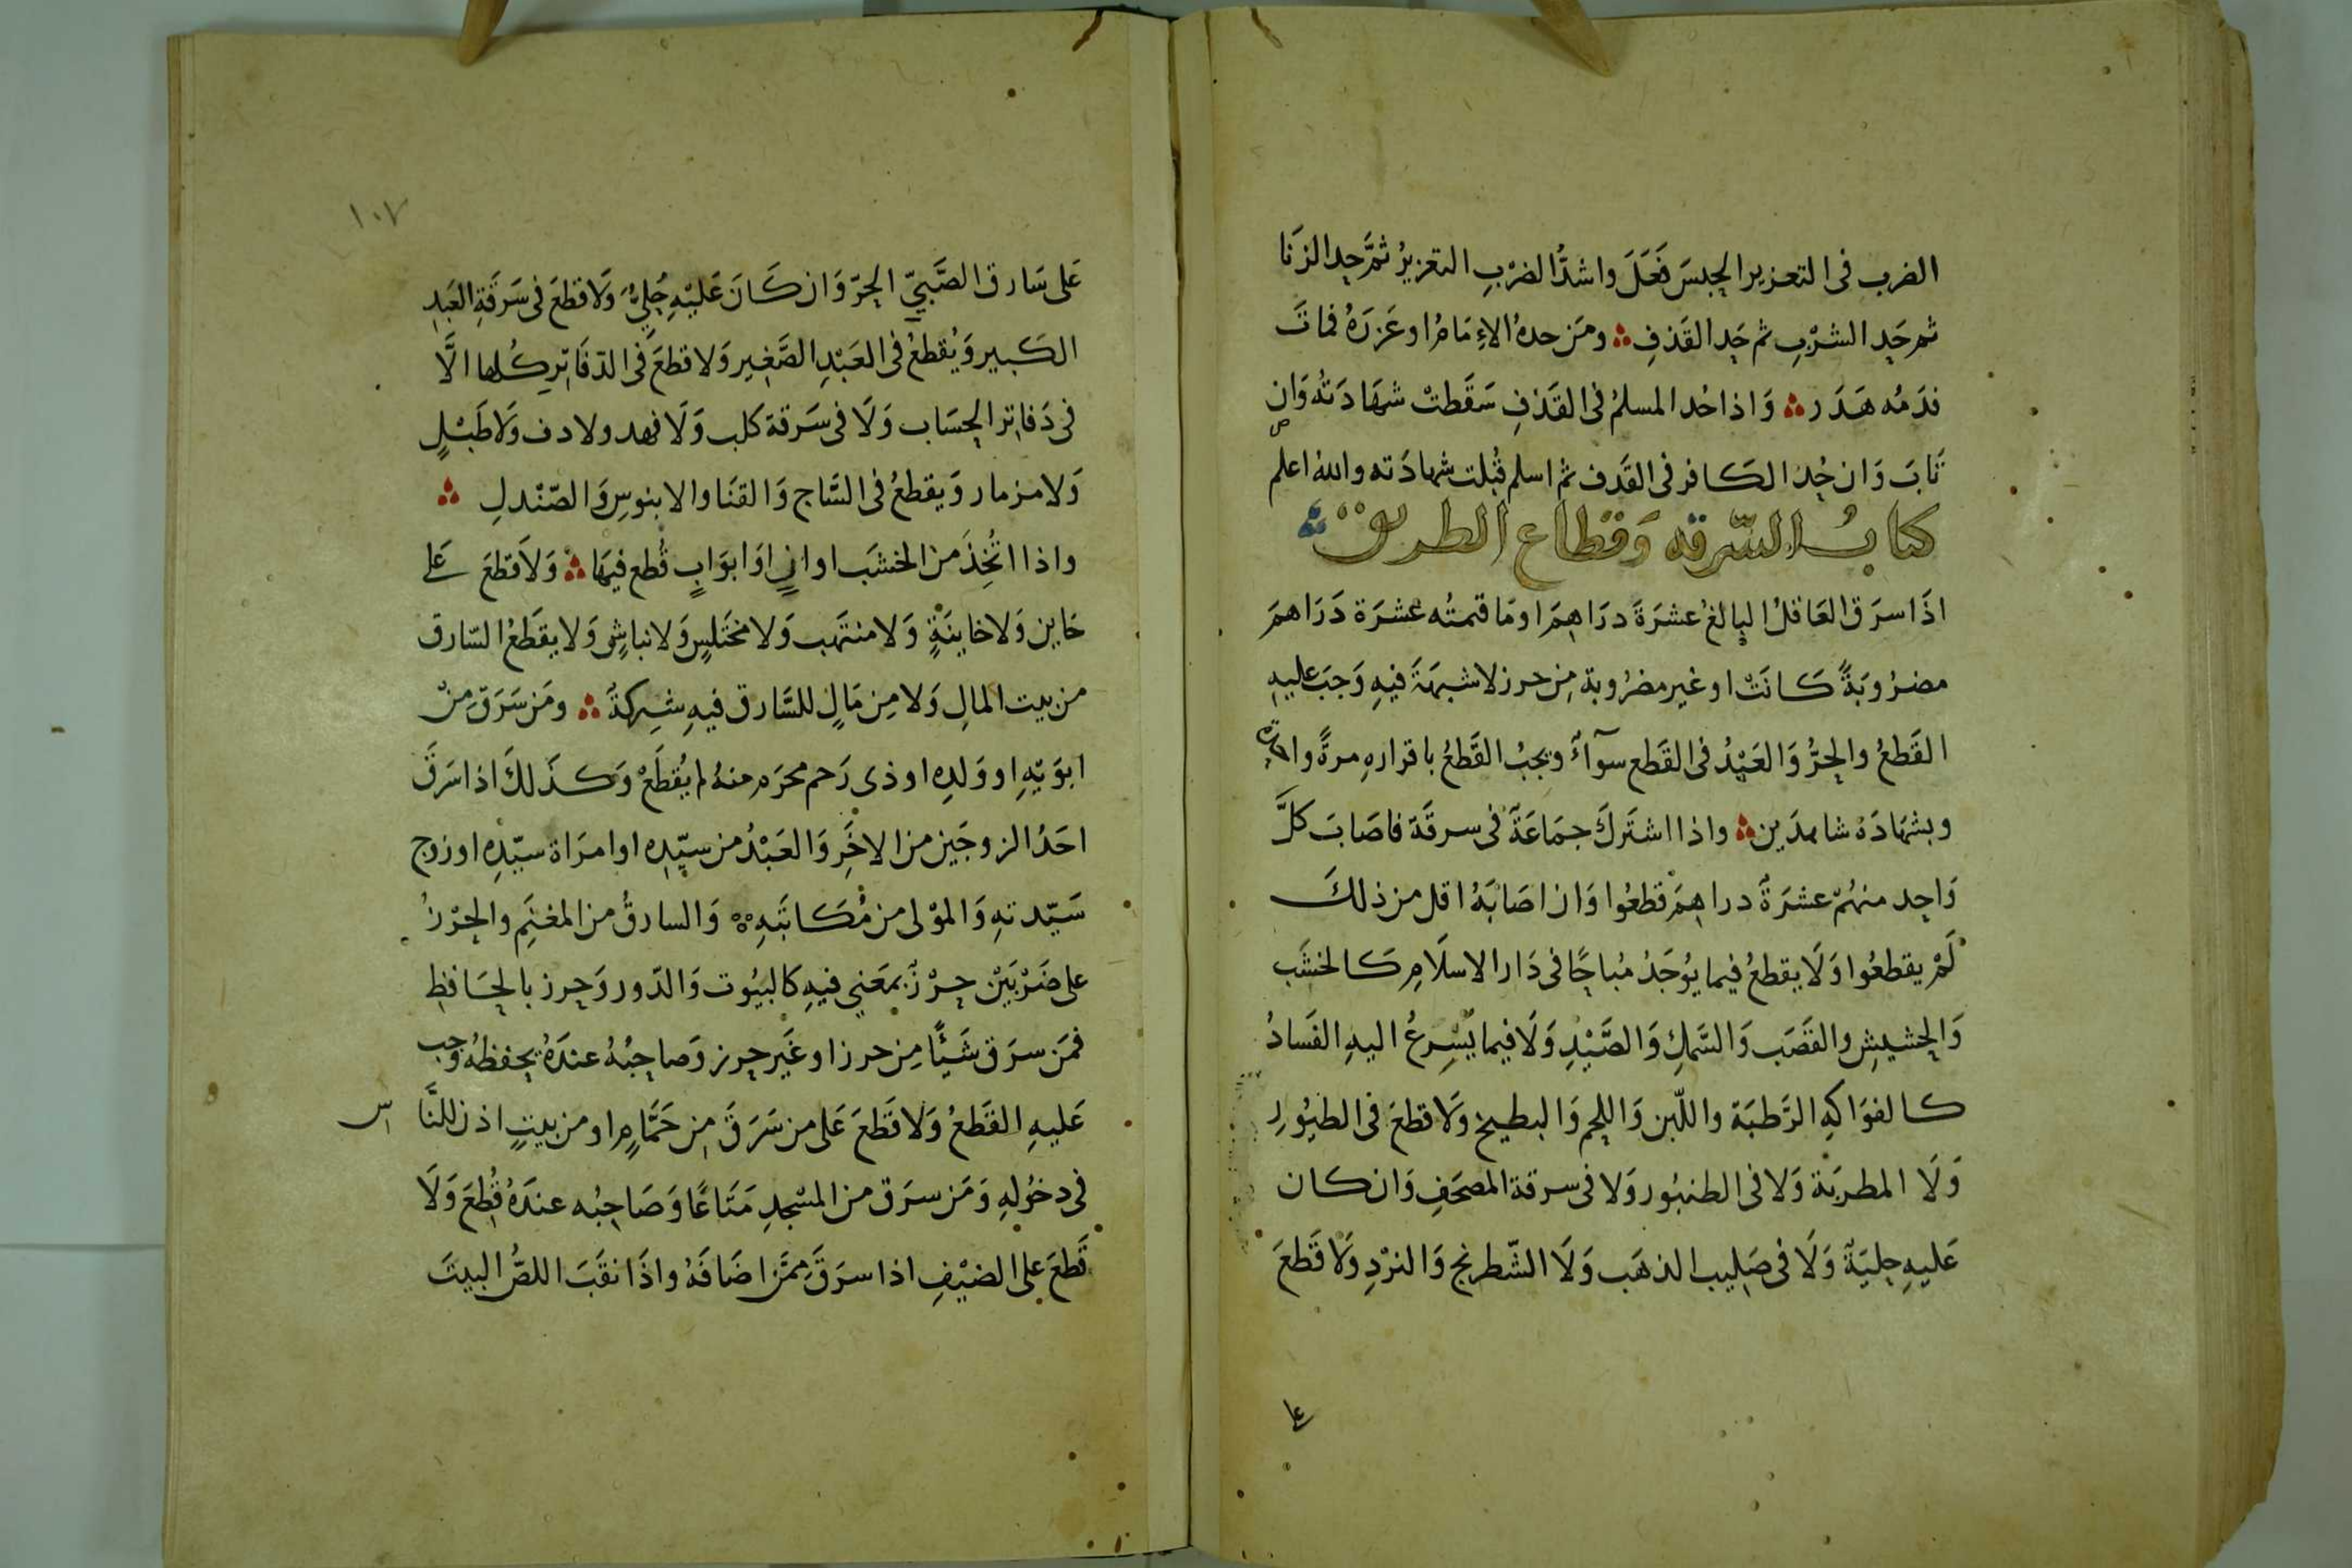 الضرب فى التعزير الحِبسَ فَعَلَ واشدُّ الضرْبِ التعزيرُ ثمَّ حِد الزنَا
ثم حَدِ الشرْبِ ثم حَدِ القَذفِ ومَن حدهُ الاِمَامُ او عَزرَهُ فمات
فدَمُه هَدَر وَاذا حُد المسلمُ فى القَذفِ سَقَطتْ شهَادَتُه وَان
تَابَ وَان حُد الكافر فى القَذف ثم اسلم قُبلت شهادَته والله اعلم
كتابُ السّرقه وَقطاع الطريق
اذَا سرَق العَاقلُ البالغُ عشرَةَ درَاهِمَ او مَا قيمتُه عشرَة دَرَاهمَ
مضرُوبَةً كَانَتْ او غير مضرُوبة مِن حرز لا شبهَةَ فيهِ وَجبَ عليهِ
القَطعُ والحرُّ وَالعَبْدُ فى القَطع سوآءٌ ويجبُ القَطعُ باقرارهِ مرةً واحدة
وبشهَادَة شاهدَين واذا اشتَركَ جمَاعَةٌ فى سرقَة فاصَابَ كلَّ
وَاحِد منهُمْ عشرَةُ دراهِمَ قطعُوا وَان اصَابَهُ اقل من ذلكَ
لَمْ يقطعُوا وَلَا يقطعُ فيما يوُجَدُ مُباحًا فى دَار الاسلَامِ كَالخشَب
وَالحِشيشِ والقَصَب وَالسَّمكِ وَالصَّيْدِ وَلَا فيما يَسْرِعُ اليهِ الفَسادُ
كالفوَاكهِ الرَّطبَة واللّبن وَاللحم وَالبطيخ وَلَا قطعَ فى الطيُورِ
وَلَا المطربَة وَلا فى الطنبُور وَلا فى سرقة المصحَفِ وَان كان
عَليهِ حِليَةٌ وَلَا فى صَلِيب الذهَب وَلَا الشّطرنج وَالنرْدِ وَلَا قَطعَ
١٠٧
عَلى سَارق الصَّبيّ الحِرّ وَان كَانَ عَليْهِ حُلِيٌّ وَلَا قطعَ فى سَرقَةِ العَبدِ
الكَبير وَيُقطعُ فى العَبْدِ الصَّغير وَلا قطعَ فى الدّفَاتِرِ كُلها الَّا
فى دَفاتر الحِسَاب وَلَا فى سَرقة كَلب وَلَا فهد ولا دف وَلَا طَبْلٍ
وَلا مزمار وَيقطعُ فى السَّاج وَالقنَا والابنوسِ وَالصّنْدلِ
واذا اتُّخِذَ من الخشَب اوانٍ اوَ ابوَابٍ قُطع فيهَا وَلَا قطعَ عَلى
خاين وَلا خاينَةٍ وَلا منتهَب وَلا مختَلِسٍ وَلا نباشٍ وَلا يقطَعُ السّارق
من بيت المالِ وَلا مِن مَالٍ للسَّارق فيهِ شِركةٌ ومَن سَرَق مِنْ
ابوَيْهِ او وَلدِه او ذى رَحم محرَم منهُ لم يُقطَعْ وَكذَلكَ اذا سَرقَ
احَدُ الزوجَين من الاخَرِ وَالعَبْدُ من سيّدِه او امرَاة سيّدِه او زوج
سَيّدتهِ وَالموْلى من مُكَاتَبهِ وَالسارقُ من المغنَمِ والحرْزُ
على ضَرْبَيْن حِرْزٌ بمعَنى فيهِ كالبيُوت وَالدّور وَحِرز بالحَافظِ
فمَن سرَق شَيْئًا مِن حرز او غَير حِرز وَصاحِبُهُ عندَهُ يحفظهُ وجب
عَليهِ القَطعُ وَلا قَطعَ عَلى من سَرَقَ مِن حَمَّامٍ او من بيتٍ اذن للنَّاس
فى دخوُلهِ وَمَن سرَق من المسْجدِ مَتَاعًا وَصَاحِبُه عندَهُ قُطِعَ وَلَا
قَطعَ على الضيْفِ اذا سرَقَ مِمَّن اضَافَهُ واذَا نقَبَ اللصُّ البيتَ